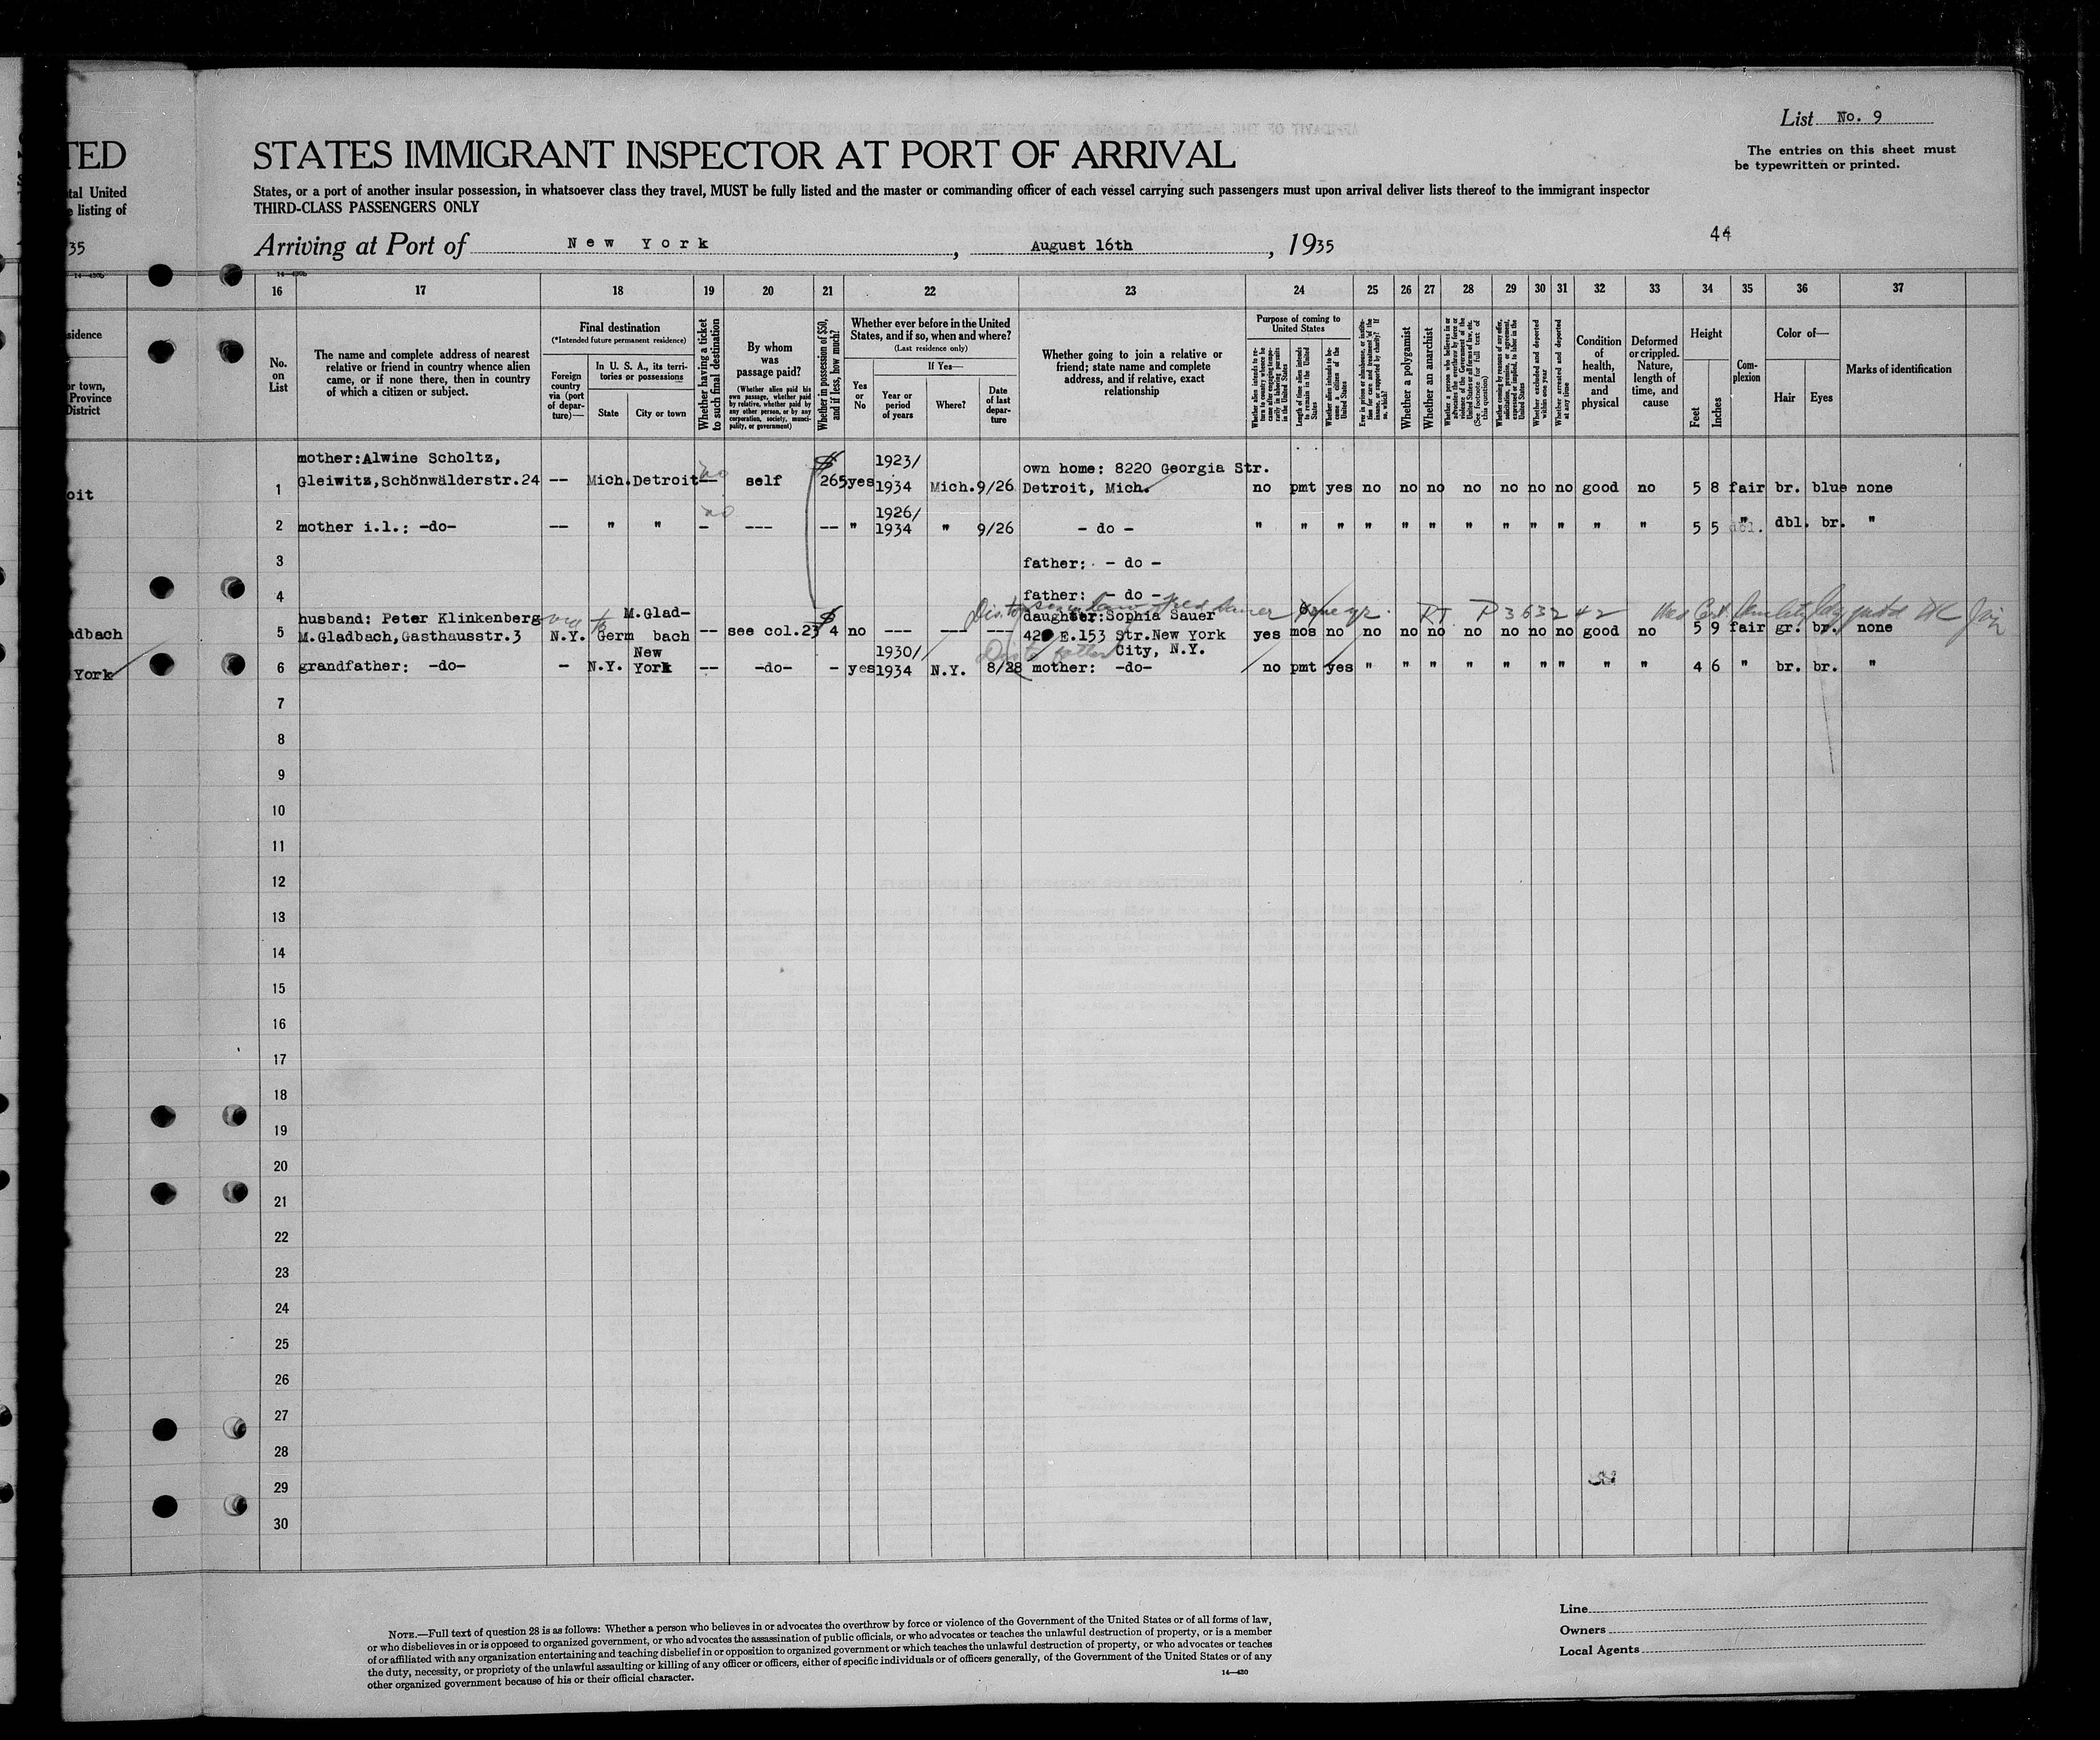 List No. 9
TED
STATES IMMIGRANT INSPECTOR AT PORT OF ARRIVAL
The entries on this sheet must
be typewritten or printed.
tal United
listing of
States, or a port of another insular possession, in whatsoever class they travel, MUST be fully listed and the master or commanding officer of each vessel carrying such passengers must upon arrival deliver lists thereof to the immigrant inspector
THIRD-CLASS PASSENGERS ONLY
35
Arriving at Port of New York, August 16th, 1935
44
16 17 18 19 20 21 22 23 24 25 26 27 28 29 30 31 32 33 34 35 36 37
sidence
or town,
Province
District
No. on List
The name and complete address of nearest
relative or friend in country whence alien
came, or if none there, then in country
of which a citizen or subject.
Final destination
(*Intended future permanent residence)
Foreign country via (port of departure)—
In U. S. A., its territories or possessions
State
City or town
Whether having a ticket to such final destination
By whom was passage paid?
(Whether alien paid his own passage, whether paid by relative, whether paid by any other person, or by any corporation, society, municipality, or government)
Whether in possession of $50, and if less, how much?
Whether ever before in the United
States, and if so, when and where?
(Last residence only)
Yes or No
If Yes—
Year or period of years
Where?
Date of last departure
Whether going to join a relative or
friend; state name and complete
address, and if relative, exact
relationship
Purpose of coming to United States
Whether alien intends to return to country whence he came after engaging temporarily in laboring pursuits in the United States
Length of time alien intends to remain in the United States
Whether alien intends to become a citizen of the United States
Whether a polygamist
Whether an anarchist
(See footnote for full text of this question)
Whether excluded and deported within one year
Whether arrested and deported at any time
Condition of health, mental and physical
Deformed or crippled. Nature, length of time, and cause
Height
Feet
Inches
Complexion
Color of—
Hair
Eyes
Marks of identification
oit
mother:Alwine Scholtz, $ 1923/ own home: 8220 Georgia Str.
1 Gleiwitz,Schönwälderstr.24 -- Mich. Detroit -- no self 265 yes 1934 Mich. 9/26 Detroit, Mich. no pmt yes no no no no no no no good no 5 8 fair br. blue none
2 mother i.l.: -do- -- " " - no --- -- " 1926/ 1934 " 9/26 - do - " " " " " " " " " " " " 5 5 " dbl. br. "
3 father: - do -
4 father: - do -
husband: Peter Klinkenberg M.Glad- $ daughter:Sophia Sauer
adbach
5 M.Gladbach,Gasthausstr.3 N.Y. Germ bach -- see col.23 4 no --- --- --- E.153 Str.New York yes mos no no no no no no no no good no 5 9 fair gr. br. none
City, N.Y.
York
6 grandfather: -do- - N.Y. New York -- -do- - yes 1930/ 1934 N.Y. 8/28 mother: -do- no pmt yes " " " " " " " " " 4 6 " br. br. "
7
8
9
10
11
12
13
14
15
16
17
18
19
20
21
22
23
24
25
26
27
28
29
30
NOTE.—Full text of question 28 is as follows: Whether a person who believes in or advocates the overthrow by force or violence of the Government of the United States or of all forms of law,
or who disbelieves in or is opposed to organized government, or who advocates the assassination of public officials, or who advocates or teaches the unlawful destruction of property, or is a member
of or affiliated with any organization entertaining and teaching disbelief in or opposition to organized government or which teaches the unlawful destruction of property, or who advocates or teaches
the duty, necessity, or propriety of the unlawful assaulting or killing of any officer or officers, either of specific individuals or of officers generally, of the Government of the United States or of any
other organized government because of his or their official character.
14—430
Line
Owners
Local Agents